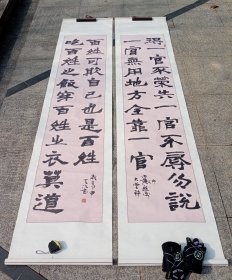 得一官不榮失一官不辱勿說
一官無用地方全靠一官
吃百姓之飯穿百姓之衣莫道
百姓可欺自己也是百姓